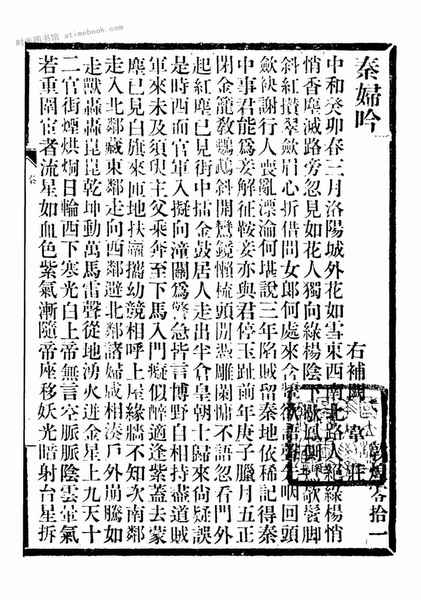 时光图书馆 atimebook.com
秦婦吟
右補闕韋莊
敦煌零拾一
中和癸卯春三月洛陽城外花如雪東西南北路人絕綠楊悄
悄香塵滅路旁忽見如花人獨向綠楊陰下歇鳳側鸞欹鬢脚
斜紅攢翠斂眉心折借問女郎何處來含嚬欲語聲先咽回頭
斂袂謝行人喪亂漂淪何堪說三年陷賊留秦地依稀記得秦
中事君能爲妾解征鞍妾亦與君停玉趾前年庚子臘月五正
閉金籠教鸚鵡斜開鸞鏡懶梳頭閒憑雕闌慵不語忽看門外
起紅塵已見街中擂金鼓居人走出半倉皇朝士歸來尚疑誤
是時西面官軍入擬向潼關爲警急皆言博野自相持盡道賊
軍來未及須臾主父乘奔至下馬入門癡似醉適逢紫蓋去蒙
塵已見白旗來匝地扶羸攜幼競相呼上屋緣牆不知次南鄰
走入北鄰藏東鄰走向西鄰避北鄰諸婦咸相湊戶外崩騰如
走獸轟轟崑崑乾坤動萬馬雷聲從地湧火迸金星上九天十
二官街煙烘烔日輪西下寒光白上帝無言空脈脈陰雲暈氣
若重圍宦者流星如血色紫氣漸隨帝座移妖光暗射台星拆